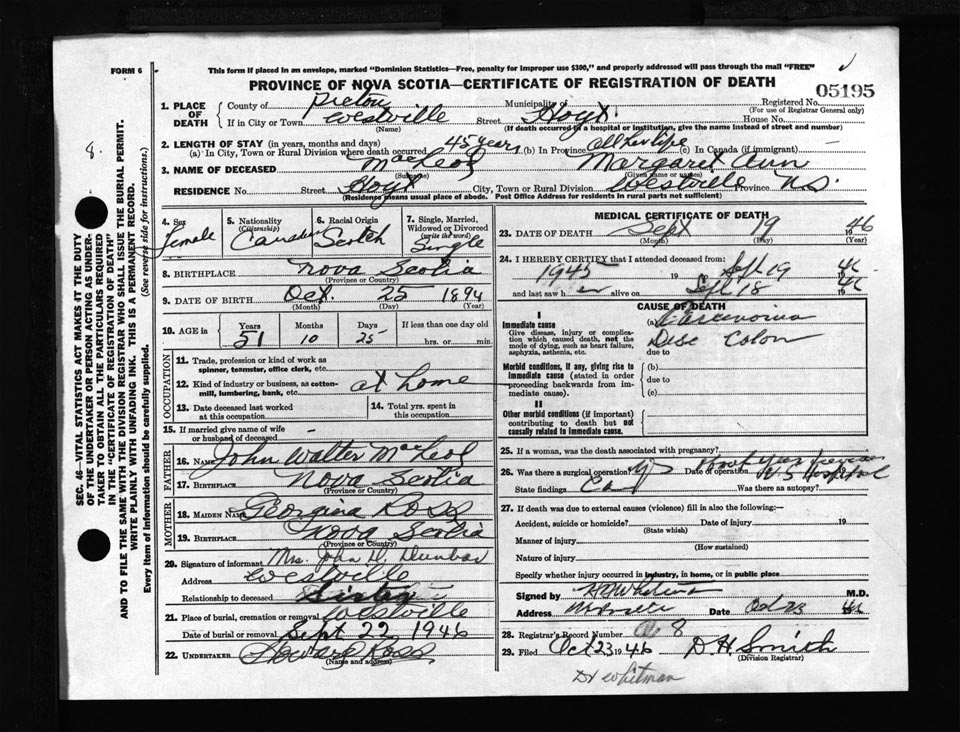 FORM 6
This form if placed in an envelope, marked "Dominion Statistics—Free, penalty for improper use $300," and properly addressed will pass through the mail "FREE"
PROVINCE OF NOVA SCOTIA—CERTIFICATE OF REGISTRATION OF DEATH
05195
1. PLACE OF DEATH
County of Pictou Municipality of Registered No.
(For use of Registrar General only)
If in City or Town Westville Street Hoyt House No.
(Name) (If death occurred in a hospital or institution, give the name instead of street and number)
2. LENGTH OF STAY (in years, months and days)
(a) In City, Town or Rural Division where death occurred 45 years (b) In Province all her life (c) In Canada (if immigrant) —
3. NAME OF DECEASED MacLeod Margaret Ann
(Surname) (Given name or names)
RESIDENCE No. Street Hoyt City, Town or Rural Division Westville Province N.S.
(Residence means usual place of abode. Post Office Address for residents in rural parts not sufficient)
4. Sex Female
5. Nationality (Citizenship) Canadian
6. Racial Origin Scotch
7. Single, Married, Widowed or Divorced (write the word) Single
8. BIRTHPLACE Nova Scotia
(Province or Country)
9. DATE OF BIRTH Oct. 25 1894
(Month) (Day) (Year)
10. AGE in Years Months Days If less than one day old
51 10 25 hrs. or min.
OCCUPATION
11. Trade, profession or kind of work as spinner, teamster, office clerk, etc.
12. Kind of industry or business, as cotton-mill, lumbering, bank, etc. at home
13. Date deceased last worked at this occupation
14. Total yrs. spent in this occupation
15. If married give name of wife or husband of deceased —
FATHER
16. NAME John Walter MacLeod
17. BIRTHPLACE Nova Scotia
(Province or Country)
MOTHER
18. MAIDEN NAME Georgina Ross
19. BIRTHPLACE Nova Scotia
(Province or Country)
20. Signature of informant Mrs. John W. Dunbar
Address Westville
Relationship to deceased Sister
21. Place of burial, cremation or removal Westville
Date of burial or removal Sept 22, 1946
22. UNDERTAKER Howard Ross
(Name and address)
MEDICAL CERTIFICATE OF DEATH
23. DATE OF DEATH Sept 19 1946
(Month) (Day) (Year)
24. I HEREBY CERTIFY that I attended deceased from:
1945 19 to Sept 19 1946
and last saw her alive on Sept 18 1946
CAUSE OF DEATH
I
Immediate cause
Give disease, injury or complication which caused death, not the mode of dying, such as heart failure, asphyxia, asthenia, etc.
(a) Carcinoma
Desc Colon
due to
Morbid conditions, if any, giving rise to immediate cause (stated in order proceeding backwards from immediate cause).
(b)
due to
(c)
II
Other morbid conditions (if important) contributing to death but not causally related to immediate cause.
25. If a woman, was the death associated with pregnancy?
26. Was there a surgical operation? Yes Date of operation
State findings Ca Was there an autopsy? Hospital
27. If death was due to external causes (violence) fill in also the following:—
Accident, suicide or homicide? Date of injury 19
(State which)
Manner of injury
(How sustained)
Nature of injury
Specify whether injury occurred in industry, in home, or in public place
Signed by M.D.
Address Date Oct 23 46
28. Registrar's Record Number 8
29. Filed Oct 23 1946 D. H. Smith
(Division Registrar)
Dr Whitman
8.
SEC. 46—VITAL STATISTICS ACT MAKES IT THE DUTY
OF THE UNDERTAKER OR PERSON ACTING AS UNDER-
TAKER TO OBTAIN ALL THE PARTICULARS REQUIRED
IN THE "CERTIFICATE OF REGISTRATION OF DEATH"
AND TO FILE THE SAME WITH THE DIVISION REGISTRAR WHO SHALL ISSUE THE BURIAL PERMIT.
WRITE PLAINLY WITH UNFADING INK. THIS IS A PERMANENT RECORD.
Every item of Information should be carefully supplied. (See reverse side for instructions.)